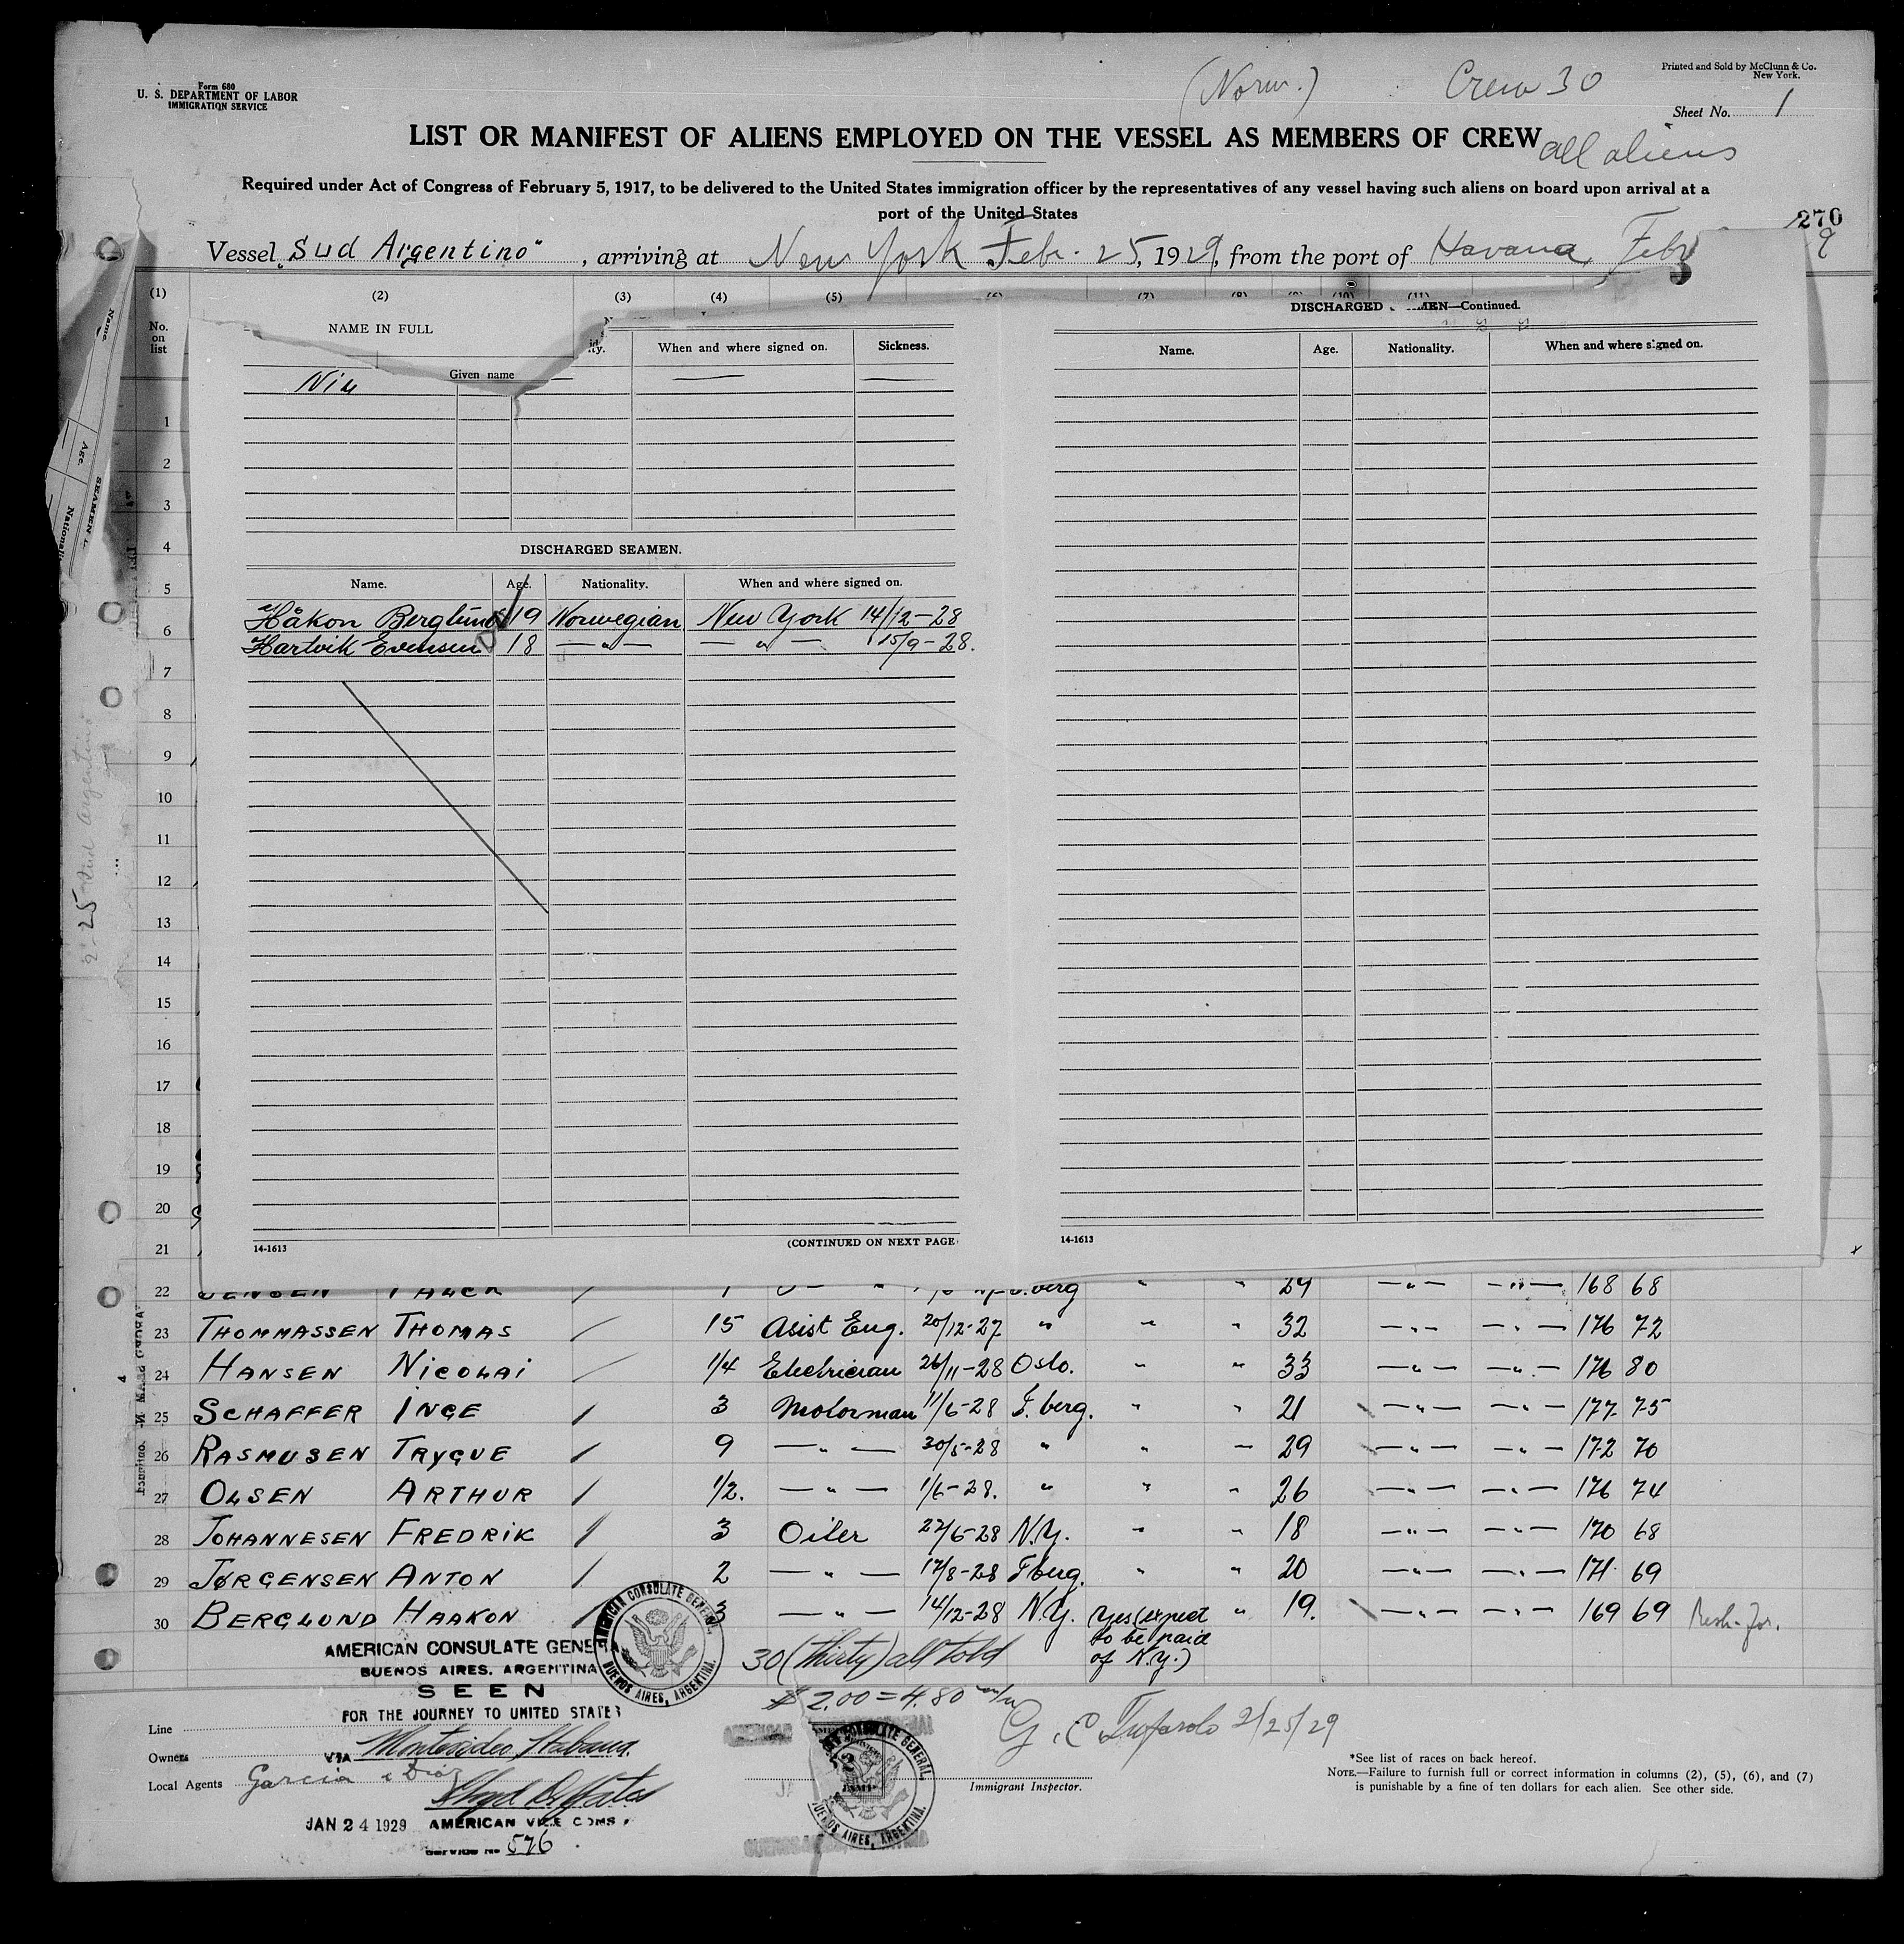 Form 680
U. S. DEPARTMENT OF LABOR
IMMIGRATION SERVICE
(Norw.) Crew 30
Printed and Sold by McClunn & Co.
New York.
Sheet No. 1
LIST OR MANIFEST OF ALIENS EMPLOYED ON THE VESSEL AS MEMBERS OF CREW
all aliens
Required under Act of Congress of February 5, 1917, to be delivered to the United States immigration officer by the representatives of any vessel having such aliens on board upon arrival at a
port of the United States
270
Vessel "Sud Argentino", arriving at New York Feb. 25, 1929, from the port of Havana, Feb
(1) (2) (3) (4) (5)
No. on list
NAME IN FULL
Given name
When and where signed on. Sickness.
DISCHARGED SEAMEN.
Name. Age. Nationality. When and where signed on.
Håkon Berglund 19 Norwegian New York 14/12-28
Hartvik Evensen 18 —"— —"— 15/9-28.
14-1613 (CONTINUED ON NEXT PAGE
DISCHARGED MEN—Continued.
Name. Age. Nationality. When and where signed on.
14-1613
1
2
3
4
5
6
7
8
9
10
11
12
13
14
15
16
17
18
19
20
21
2-25 Sud Argentino
22 JENSEN 29 —"— —"— 168 68
23 THOMMASSEN THOMAS 15 Asist Eng. 20/12-27 " " " 32 —"— —"— 176 72
24 HANSEN NICOLAI 1/4 Electrician 26/11-28 Oslo. " " 33 —"— —"— 176 80
25 SCHAFFER INGE 3 Motorman 11/6-28 T.berg. " " 21 —"— —"— 177 75
26 RASMUSEN TRYGVE 9 —"— 30/5-28 " " " 29 —"— —"— 172 70
27 OLSEN ARTHUR 1/2. —"— 1/6-28. " " " 26 —"— —"— 176 74
28 JOHANNESEN FREDRIK 3 Oiler 27/6-28 N.Y. " " 18 —"— —"— 170 68
29 JØRGENSEN ANTON 2 —"— 17/8-28 Tberg. " " 20 —"— —"— 171 69
30 BERGLUND HAAKON 3 —"— 14/12-28 N.Y. Yes (expect to be paid of N.Y.) " 19. —"— —"— 169 69
30 (Thirty) all told
AMERICAN CONSULATE GENE
BUENOS AIRES, ARGENTINA
SEEN
FOR THE JOURNEY TO UNITED STATES
VIA Montevideo, Habana.
AMERICAN CONSULATE GENERAL, BUENOS AIRES, ARGENTINA.
$ 2.00 = 4.80
2/25/29
Line
Owners
Local Agents Garcia & Diaz
Immigrant Inspector.
JAN 24 1929 AMERICAN VICE CONS
Service No 576
CONSULATE GENERAL, BUENOS AIRES, ARGENTINA.
*See list of races on back hereof.
NOTE.—Failure to furnish full or correct information in columns (2), (5), (6), and (7)
is punishable by a fine of ten dollars for each alien. See other side.